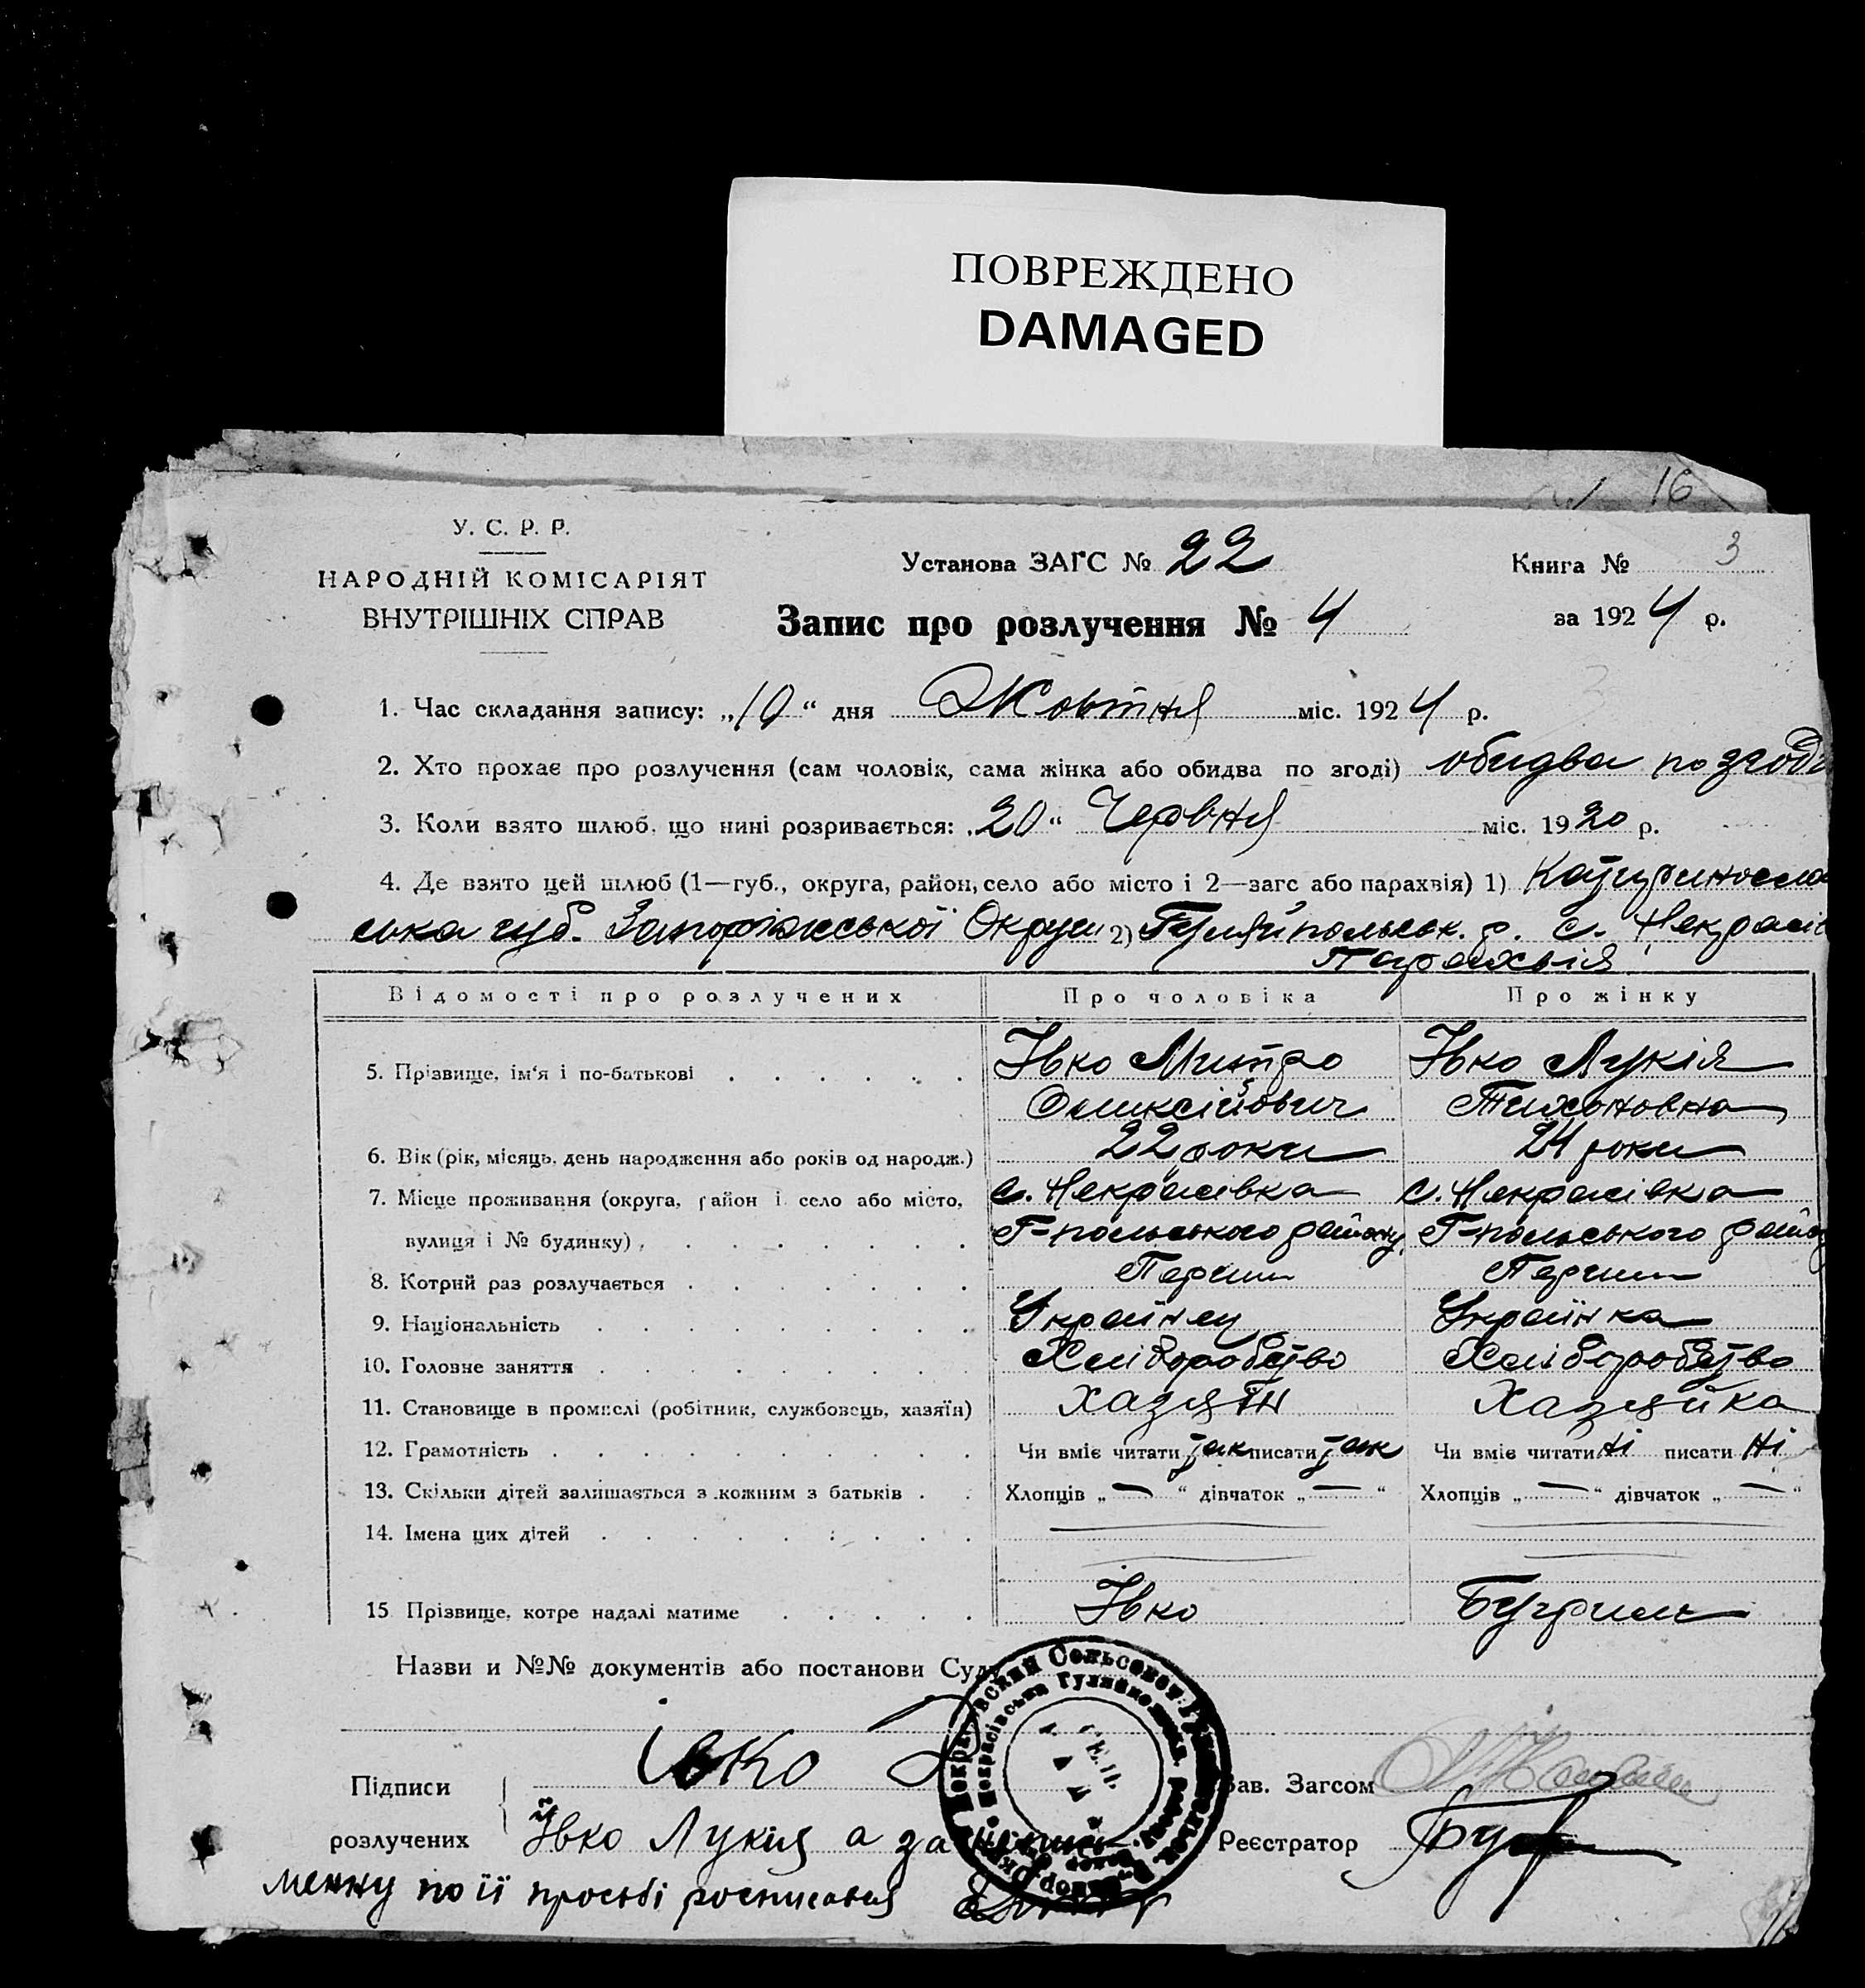 ПОВРЕЖДЕНО
DAMAGED
16
У. С. Р. Р.
НАРОДНІЙ КОМІСАРІЯТ
ВНУТРІШНІХ СПРАВ
Установа ЗАГС № 22
Книга № 3
Запис про розлучення № 4
за 1924 р.
1. Час складання запису: „10“ дня Жовтня міс. 1924 р.
2. Хто прохає про розлучення (сам чоловік, сама жінка або обидва по згоді) обидва по згоді
3. Коли взято шлюб, що нині розривається: „20“ Червня міс. 1920 р.
4. Де взято цей шлюб (1—губ., округа, район, село або місто і 2—загс або парахвія) 1) Катириносла
вска губ. Запоріжської Округи 2) Гуляйпольськ. р. с. Некрасів
Парахвія
Відомості про розлучених Про чоловіка Про жінку
5. Прізвище, ім'я і по-батькові Івко Митро Івко Лукія
Оликсійович Тихоновна
6. Вік (рік, місяць, день народження або років од народж.) 22 роки 24 роки
7. Місце проживання (округа, район і село або місто, с. Некрасівка с. Некрасівка
вулиця і № будинку) Г-польського району Г-польського райо
8. Котрий раз розлучається Перший Перший
9. Національність Українец Українка
10. Головне заняття Хліборобство Хліборобство
11. Становище в промислі (робітник, службовець, хазяїн) Хазяїн Хазяйка
12. Грамотність Чи вміє читати так писати так Чи вміє читати ні писати ні
13. Скільки дітей залишається з кожним з батьків Хлопців „—“ дівчаток „—“ Хлопців „—“ дівчаток „—“
14. Імена цих дітей
15 Прізвище, котре надалі матиме Івко Бугрим
Назви и №№ документів або постанови Суду
Підписи Івко
Зав. Загсом
розлучених Івко Лукія а за
Реєстратор
менну по її просьбі росписався